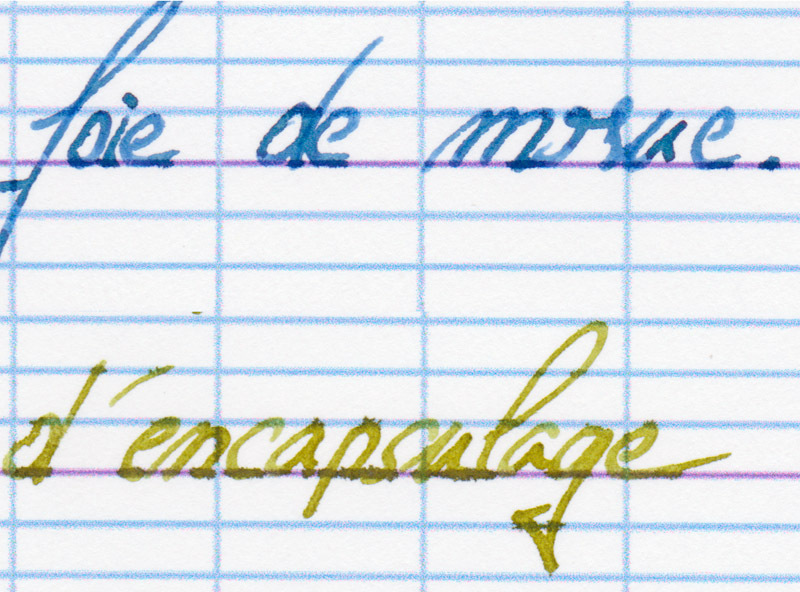 foie de morue.
d'encapsulage